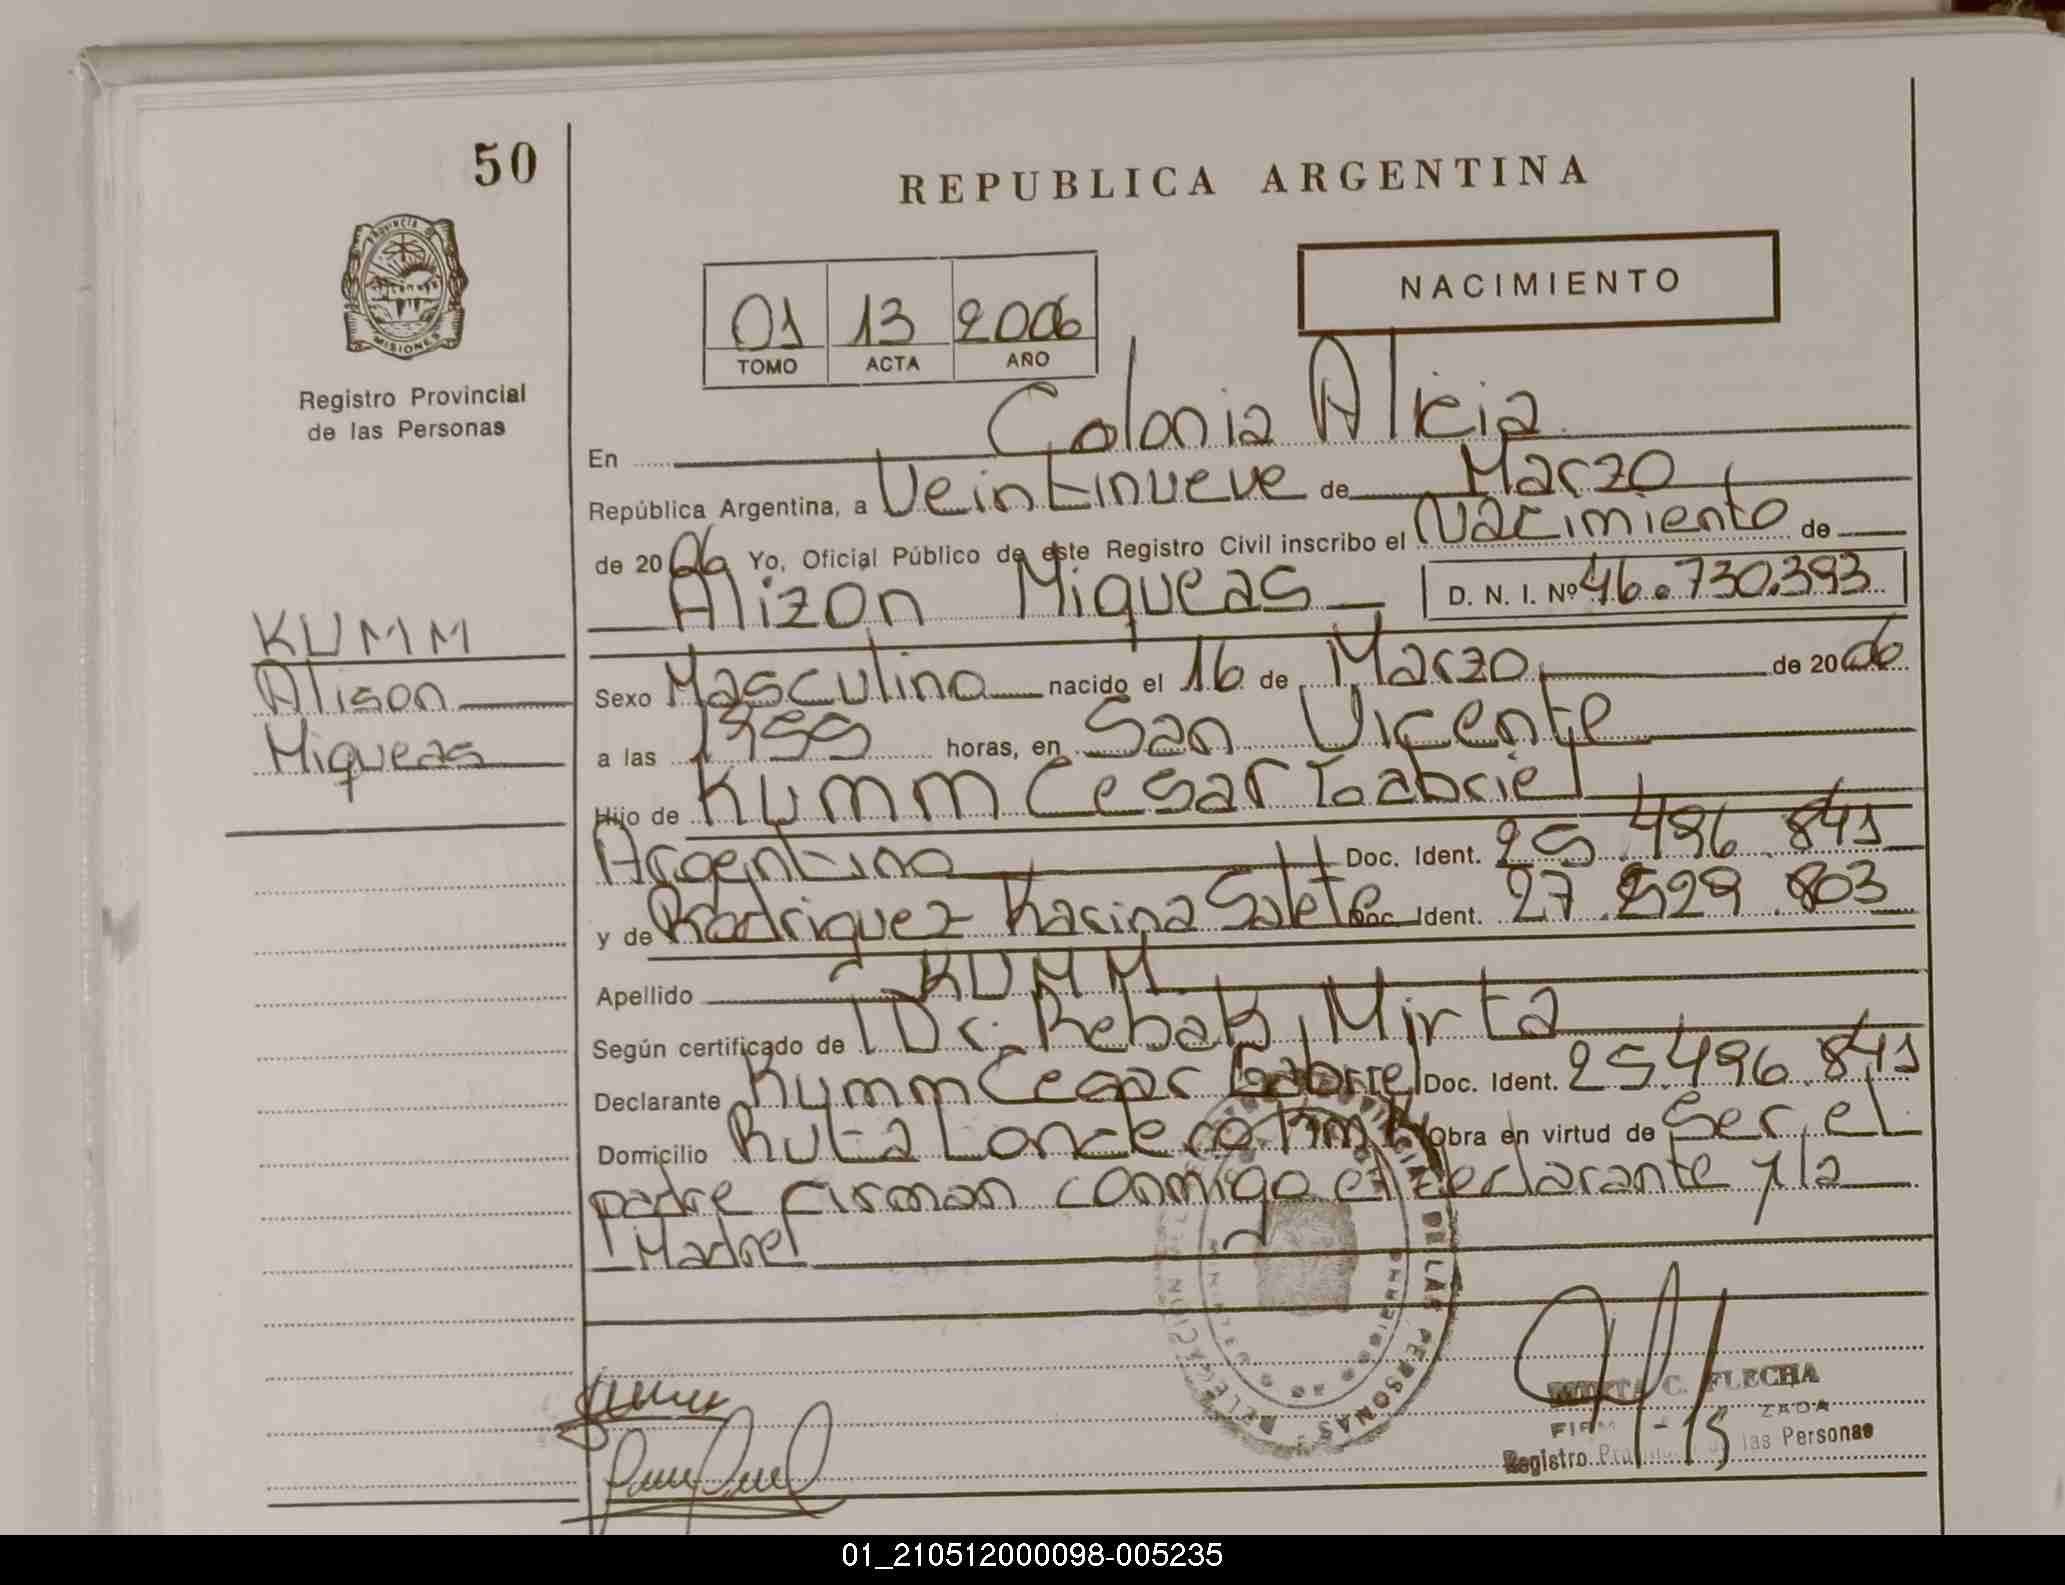 50
REPUBLICA ARGENTINA
PROVINCIA DE
MISIONES
NACIMIENTO
01 13 2006
TOMO ACTA AÑO
Registro Provincial
de las Personas
En Colonia Alicia
República Argentina, a Veintinueve de Marzo
de 2006 Yo, Oficial Público de este Registro Civil inscribo el Nacimiento de
Alizon Miqueas D. N. I. Nº 46.730.393
KUMM
Alison
Miqueas
Sexo Masculino nacido el 16 de Marzo de 2006
a las horas, en San Vicente
Hijo de Kumm Cesar Gabriel
Argentino Doc. Ident. 25 496 841
y de Rodriguez Karina Salete Doc. Ident. 27 529 803
Apellido KUMM
Según certificado de Dr. Rebak, Mirta
Declarante Kumm Cesar Gabriel Doc. Ident. 25 496 841
Domicilio Ruta Obra en virtud de Ser el
padre firman conmigo el declarante y la
Madre
DE LAS PERSONAS
C. FLECHA
Registro las Personas
01_210512000098-005235